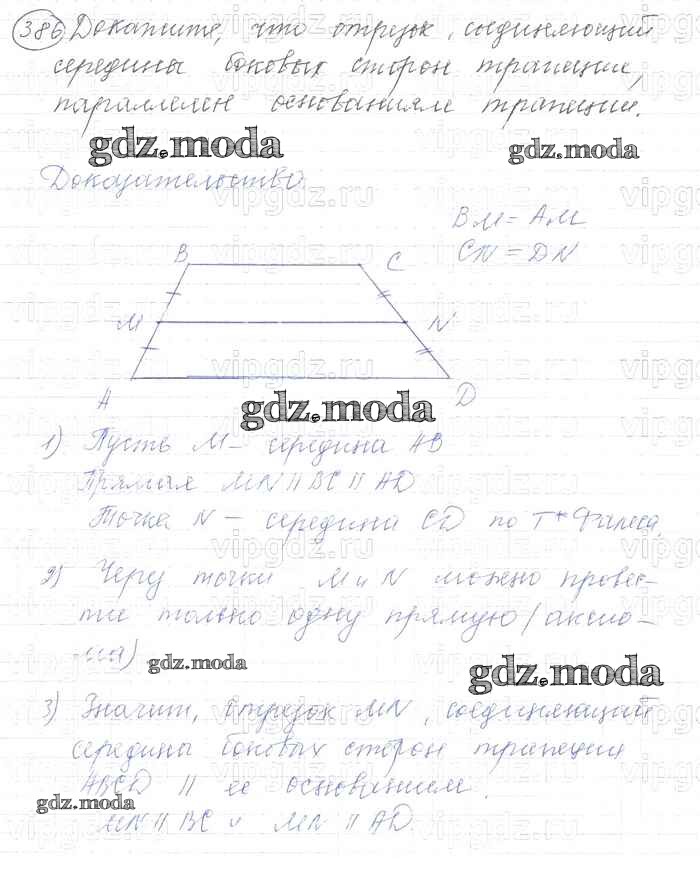 386 Докажите, что отрезок, соединяющий
середины боковых сторон трапеции,
параллелен основаниям трапеции.
gdz.moda gdz.moda
Доказательство.
BM = AM
CN = DN
B C
M N
A D
gdz.moda
1) Пусть M – середина AB
Прямая MN || BC || AD
Точка N – середина CD по т. Фалеса.
2) Через точки M и N можно прове-
сти только одну прямую (аксио-
ма)
gdz.moda gdz.moda
3) Значит, отрезок MN, соединяющий
середины боковых сторон трапеции
ABCD || ее основаниям.
gdz.moda
MN || BC и MN || AD.
vipgdz.ru